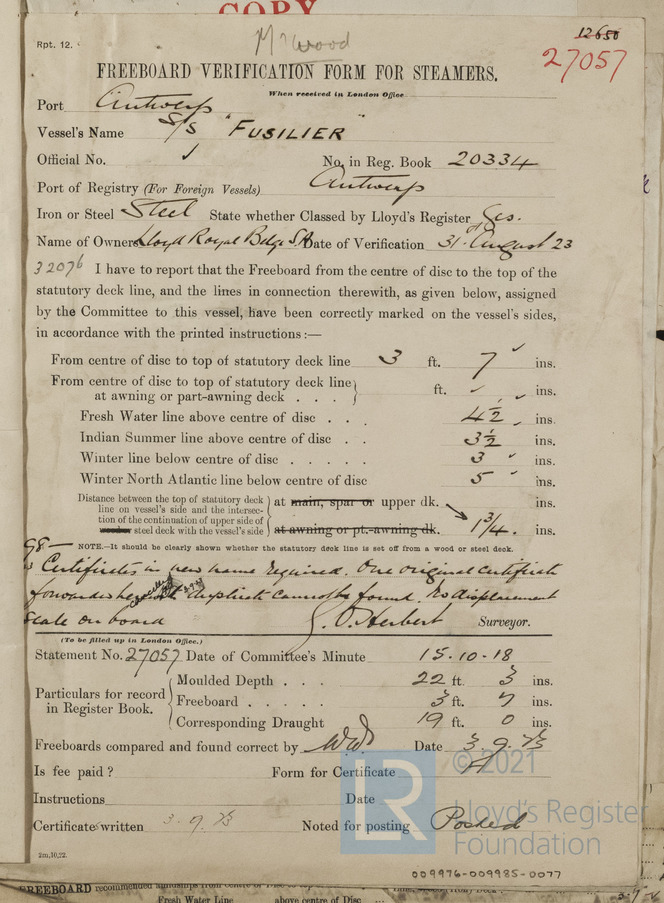 COPY
Rpt. 12.
Mr Wood
12650
27057
FREEBOARD VERIFICATION FORM FOR STEAMERS.
When received in London Office
Port Antwerp
Vessel's Name S/S "FUSILIER"
Official No.
No. in Reg. Book 20334
Port of Registry (For Foreign Vessels) Antwerp
Iron or Steel Steel State whether Classed by Lloyd's Register Yes.
Name of Owners Lloyd Royal Belge S.A. Date of Verification 31st August 23
32076 I have to report that the Freeboard from the centre of disc to the top of the
statutory deck line, and the lines in connection therewith, as given below, assigned
by the Committee to this vessel, have been correctly marked on the vessel's sides,
in accordance with the printed instructions :—
From centre of disc to top of statutory deck line 3 ft. 7 ins.
From centre of disc to top of statutory deck line
at awning or part-awning deck . . . ft. ins.
Fresh Water line above centre of disc . . . 4½ ins.
Indian Summer line above centre of disc . . 3½ ins.
Winter line below centre of disc . . . . . 3 ins.
Winter North Atlantic line below centre of disc 5 ins.
Distance between the top of statutory deck
line on vessel's side and the intersec-
tion of the continuation of upper side of
wooden steel deck with the vessel's side
at main, spar or upper dk. ins.
at awning or pt.-awning dk. 1¾. ins.
NOTE.—It should be clearly shown whether the statutory deck line is set off from a wood or steel deck.
Certificates in new name required. One original certificate
forwarded herewith duplicate cannot be found. No displacement
scale on board
Herbert Surveyor.
(To be filled up in London Office.)
Statement No. 27057 Date of Committee's Minute 15.10.18
Particulars for record
in Register Book.
Moulded Depth . . . 22 ft. 3 ins.
Freeboard . . . . . 3 ft. 7 ins.
Corresponding Draught 19 ft. 0 ins.
Freeboards compared and found correct by Date 3.9.23
Is fee paid ? Form for Certificate
Instructions Date
Certificates written 3.9.23 Noted for posting Posted
2m,10,22.
LR
© 2021
Lloyd's Register
Foundation
009976-009985-0077
FREEBOARD recommended amidships from centre of Disc to top
Fresh Water Line above centre of Disc